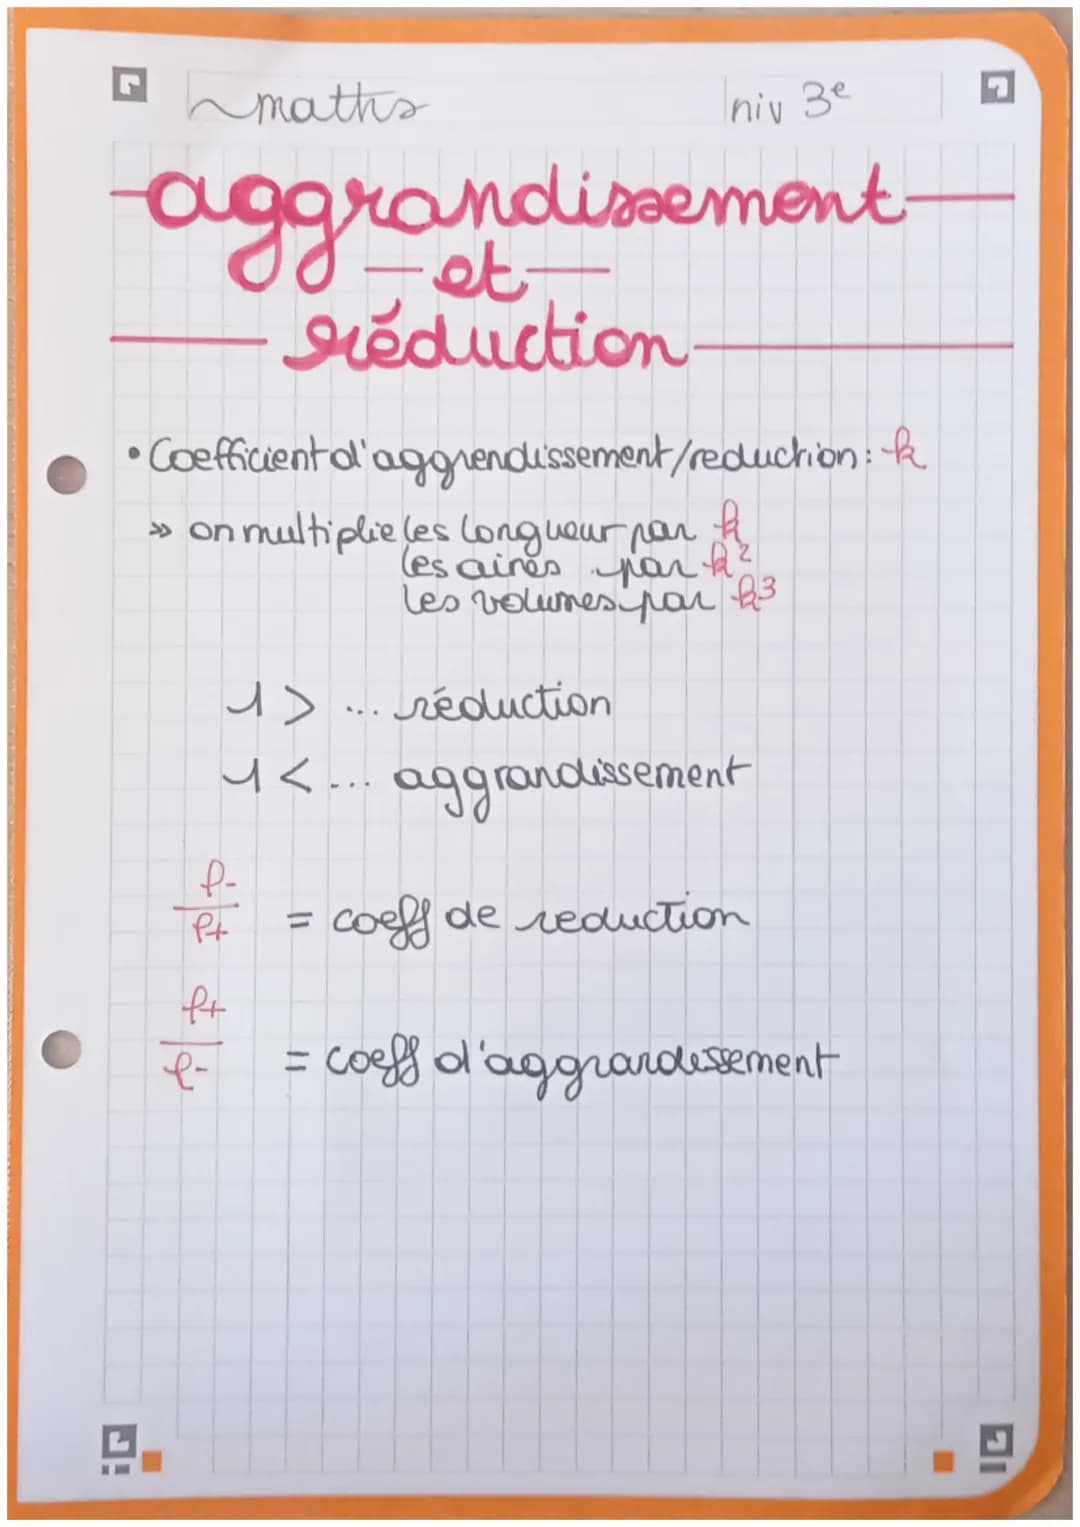 maths
niv 3e
aggrandissement
et
réduction
• Coefficient d'aggrendissement/reduction: k
» on multiplie les longueur par k
les aires par k²
les volumes par k³
1 > ... réduction
1 < ... aggrandissement
l-
l+
= coeff de reduction
l+
l-
= coeff d'aggrandissement